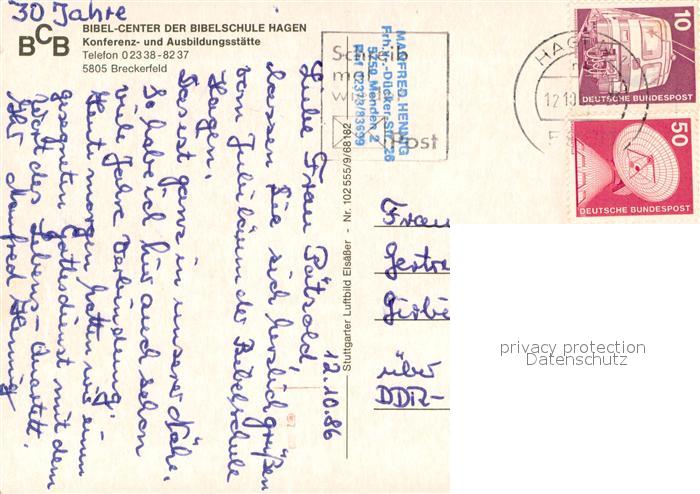 30 Jahre
BCB
BIBEL-CENTER DER BIBELSCHULE HAGEN
Konferenz- und Ausbildungsstätte
Telefon 0 23 38 - 82 37
5805 Breckerfeld
12.10.86
Liebe Frau Pätzold,
lassen Sie sich herzlich grüßen
vom Jubiläum der Bibelschule
Hagen.
Das ist ganz in unserer Nähe.
So habe ich hier auch schon
viele Jahre Verbindung.
Heute morgen hatten wir einen
gesegneten Gottesdienst mit dem
Wort des Lebens-Quartett.
Ihr Manfred Hennig
Stuttgarter Luftbild Elsäßer - Nr. 102 555/9/68182
MANFRED HENNIG
Frh.-v.-Dücker-Str. 26
5750 Menden 2
Ruf 02373/83699
Post
HAGEN
12.10
10
DEUTSCHE BUNDESPOST
50
DEUTSCHE BUNDESPOST
Frau
Gertr
über
DDR-
privacy protection
Datenschutz